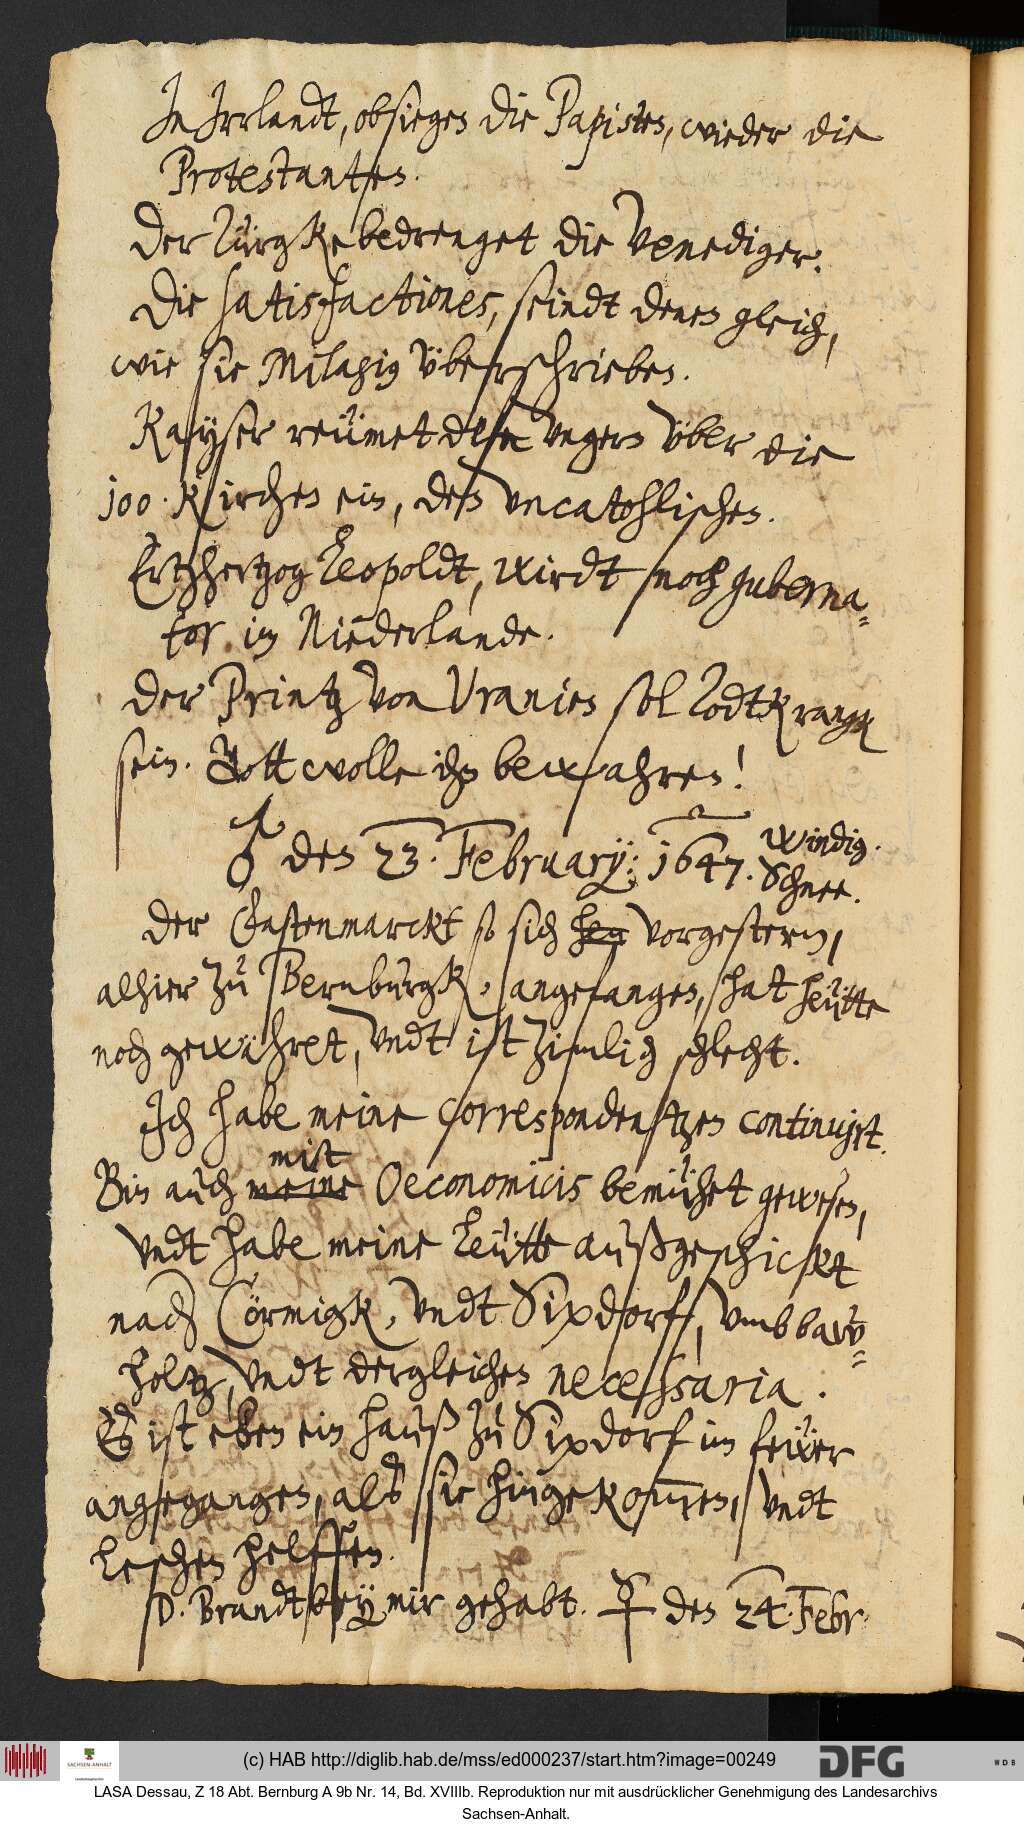 In Irrlandt, obsiegen die Papisten, wieder die
Protestanten.
Der Türgke bedrenget die Venediger.
Die satisfactiones, seindt denen gleich,
wie sie Milagius überschrieben.
Kayser reümet den Ungern über die
100. Kirchen ein, den uncatohlischen.
Ertzhertzog Leopoldt, wirdt noch guberna=
tor im Niederlande.
Der Printz von Uranien sol Todtkrangk
sein. Gott wolle ihn bewahren!
♂ den 23. February: 1647. Windig.
Schnee.
Der Fastenmarckt so sich vorgestern,
alhier zu Bernburgk, angefangen, hat heütte
noch gewähret, undt ist zimlich schlecht.
Ich habe meine correspondentzen continuirt.
mitt
Bin auch meine Oeconomicis bemühet gewesen,
undt habe meine Leütte außgeschickt
nach Cörmigk, undt Sixdorff, umb baw=
holtz, undt dergleichen necessaria.
Es ist eben ein hauß zu Sixdorf im feüer
angegangen, als sie hingekommen, undt
leschen helffen.
D. Brandt bey mir gehabt. ☿ den 24. Febr.
(c) HAB http://diglib.hab.de/mss/ed000237/start.htm?image=00249
SACHSEN-ANHALT
DFG
WDB
LASA Dessau, Z 18 Abt. Bernburg A 9b Nr. 14, Bd. XVIIIb. Reproduktion nur mit ausdrücklicher Genehmigung des Landesarchivs
Sachsen-Anhalt.